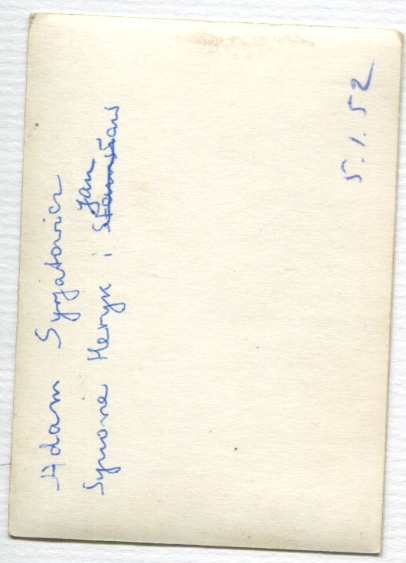 Adam Syryjatowicz
Synowie Heryk i Jan
Stanisław
5.1.52